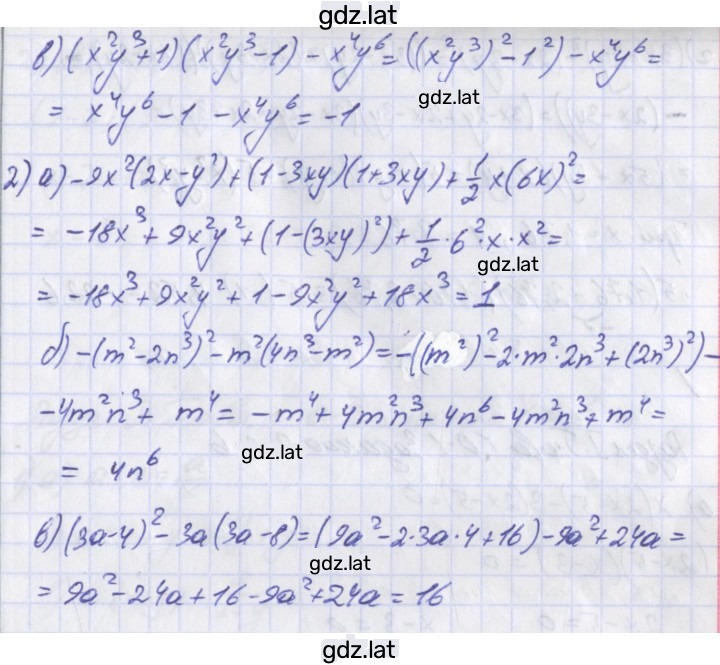 gdz.lat
в) (x²y³+1)(x²y³-1) - x⁴y⁶ = ((x²y³)² - 1²) - x⁴y⁶ =
gdz.lat
= x⁴y⁶ - 1 - x⁴y⁶ = -1
2) а) -9x²(2x-y²) + (1-3xy)(1+3xy) + 1/2 x(6x)² =
= -18x³ + 9x²y² + (1-(3xy)²) + 1/2 · 6² · x · x² =
gdz.lat
= -18x³ + 9x²y² + 1 - 9x²y² + 18x³ = 1
б) -(m²-2n³)² - m²(4n³-m²) = -((m²)² - 2·m²·2n³ + (2n³)²) -
-4m²n³ + m⁴ = -m⁴ + 4m²n³ + 4n⁶ - 4m²n³ + m⁴ =
gdz.lat
= 4n⁶
в) (3a-4)² - 3a(3a-8) = (9a² - 2·3a·4 + 16) - 9a² + 24a =
gdz.lat
= 9a² - 24a + 16 - 9a² + 24a = 16
gdz.lat